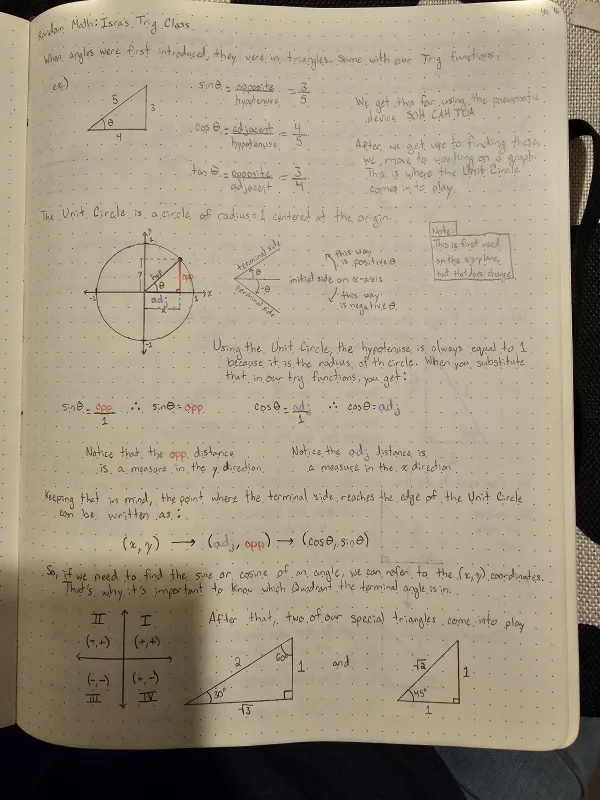 Random Math: Isra's Trig Class
When angles were first introduced, they were in triangles. Same with our Trig functions.
ex)
5
3
θ
4
sinθ = opposite/hypotenuse = 3/5
cosθ = adjacent/hypotenuse = 4/5
tanθ = opposite/adjacent = 3/4
We get this far using the pneumatic
device SOH CAH TOA
After we get use to finding these,
we move to working on a graph.
This is where the Unit Circle
comes in to play.
The Unit Circle is a circle of radius = 1 centered at the origin.
y
1
-1
1
x
-1
y
hyp
opp
θ
adj
x
terminal side
θ
-θ
initial side on x-axis
terminal side
this way
is positive θ
this way
is negative θ
Note:
This is first used
on the xy plane,
but that does change.
Using the Unit Circle, the hypotenuse is always equal to 1
because it is the radius of th circle. When you substitute
that in our trig functions, you get:
sinθ = opp/1 ∴ sinθ = opp
cosθ = adj/1 ∴ cosθ = adj
Notice that the opp distance
is a measure in the y direction.
Notice the adj distance is
a measure in the x direction
Keeping that in mind, the point where the terminal side reaches the edge of the Unit Circle
can be written as:
(x, y) → (adj, opp) → (cosθ, sinθ)
So, if we need to find the sine or cosine of an angle, we can refer to the (x, y) coordinates.
That's why it's important to know which Quadrant the terminal angle is in.
II
I
(-,+)
(+,+)
(-,-)
(+,-)
III
IV
After that, two of our special triangles come into play
2
60°
1
30°
√3
and
√2
1
45°
1